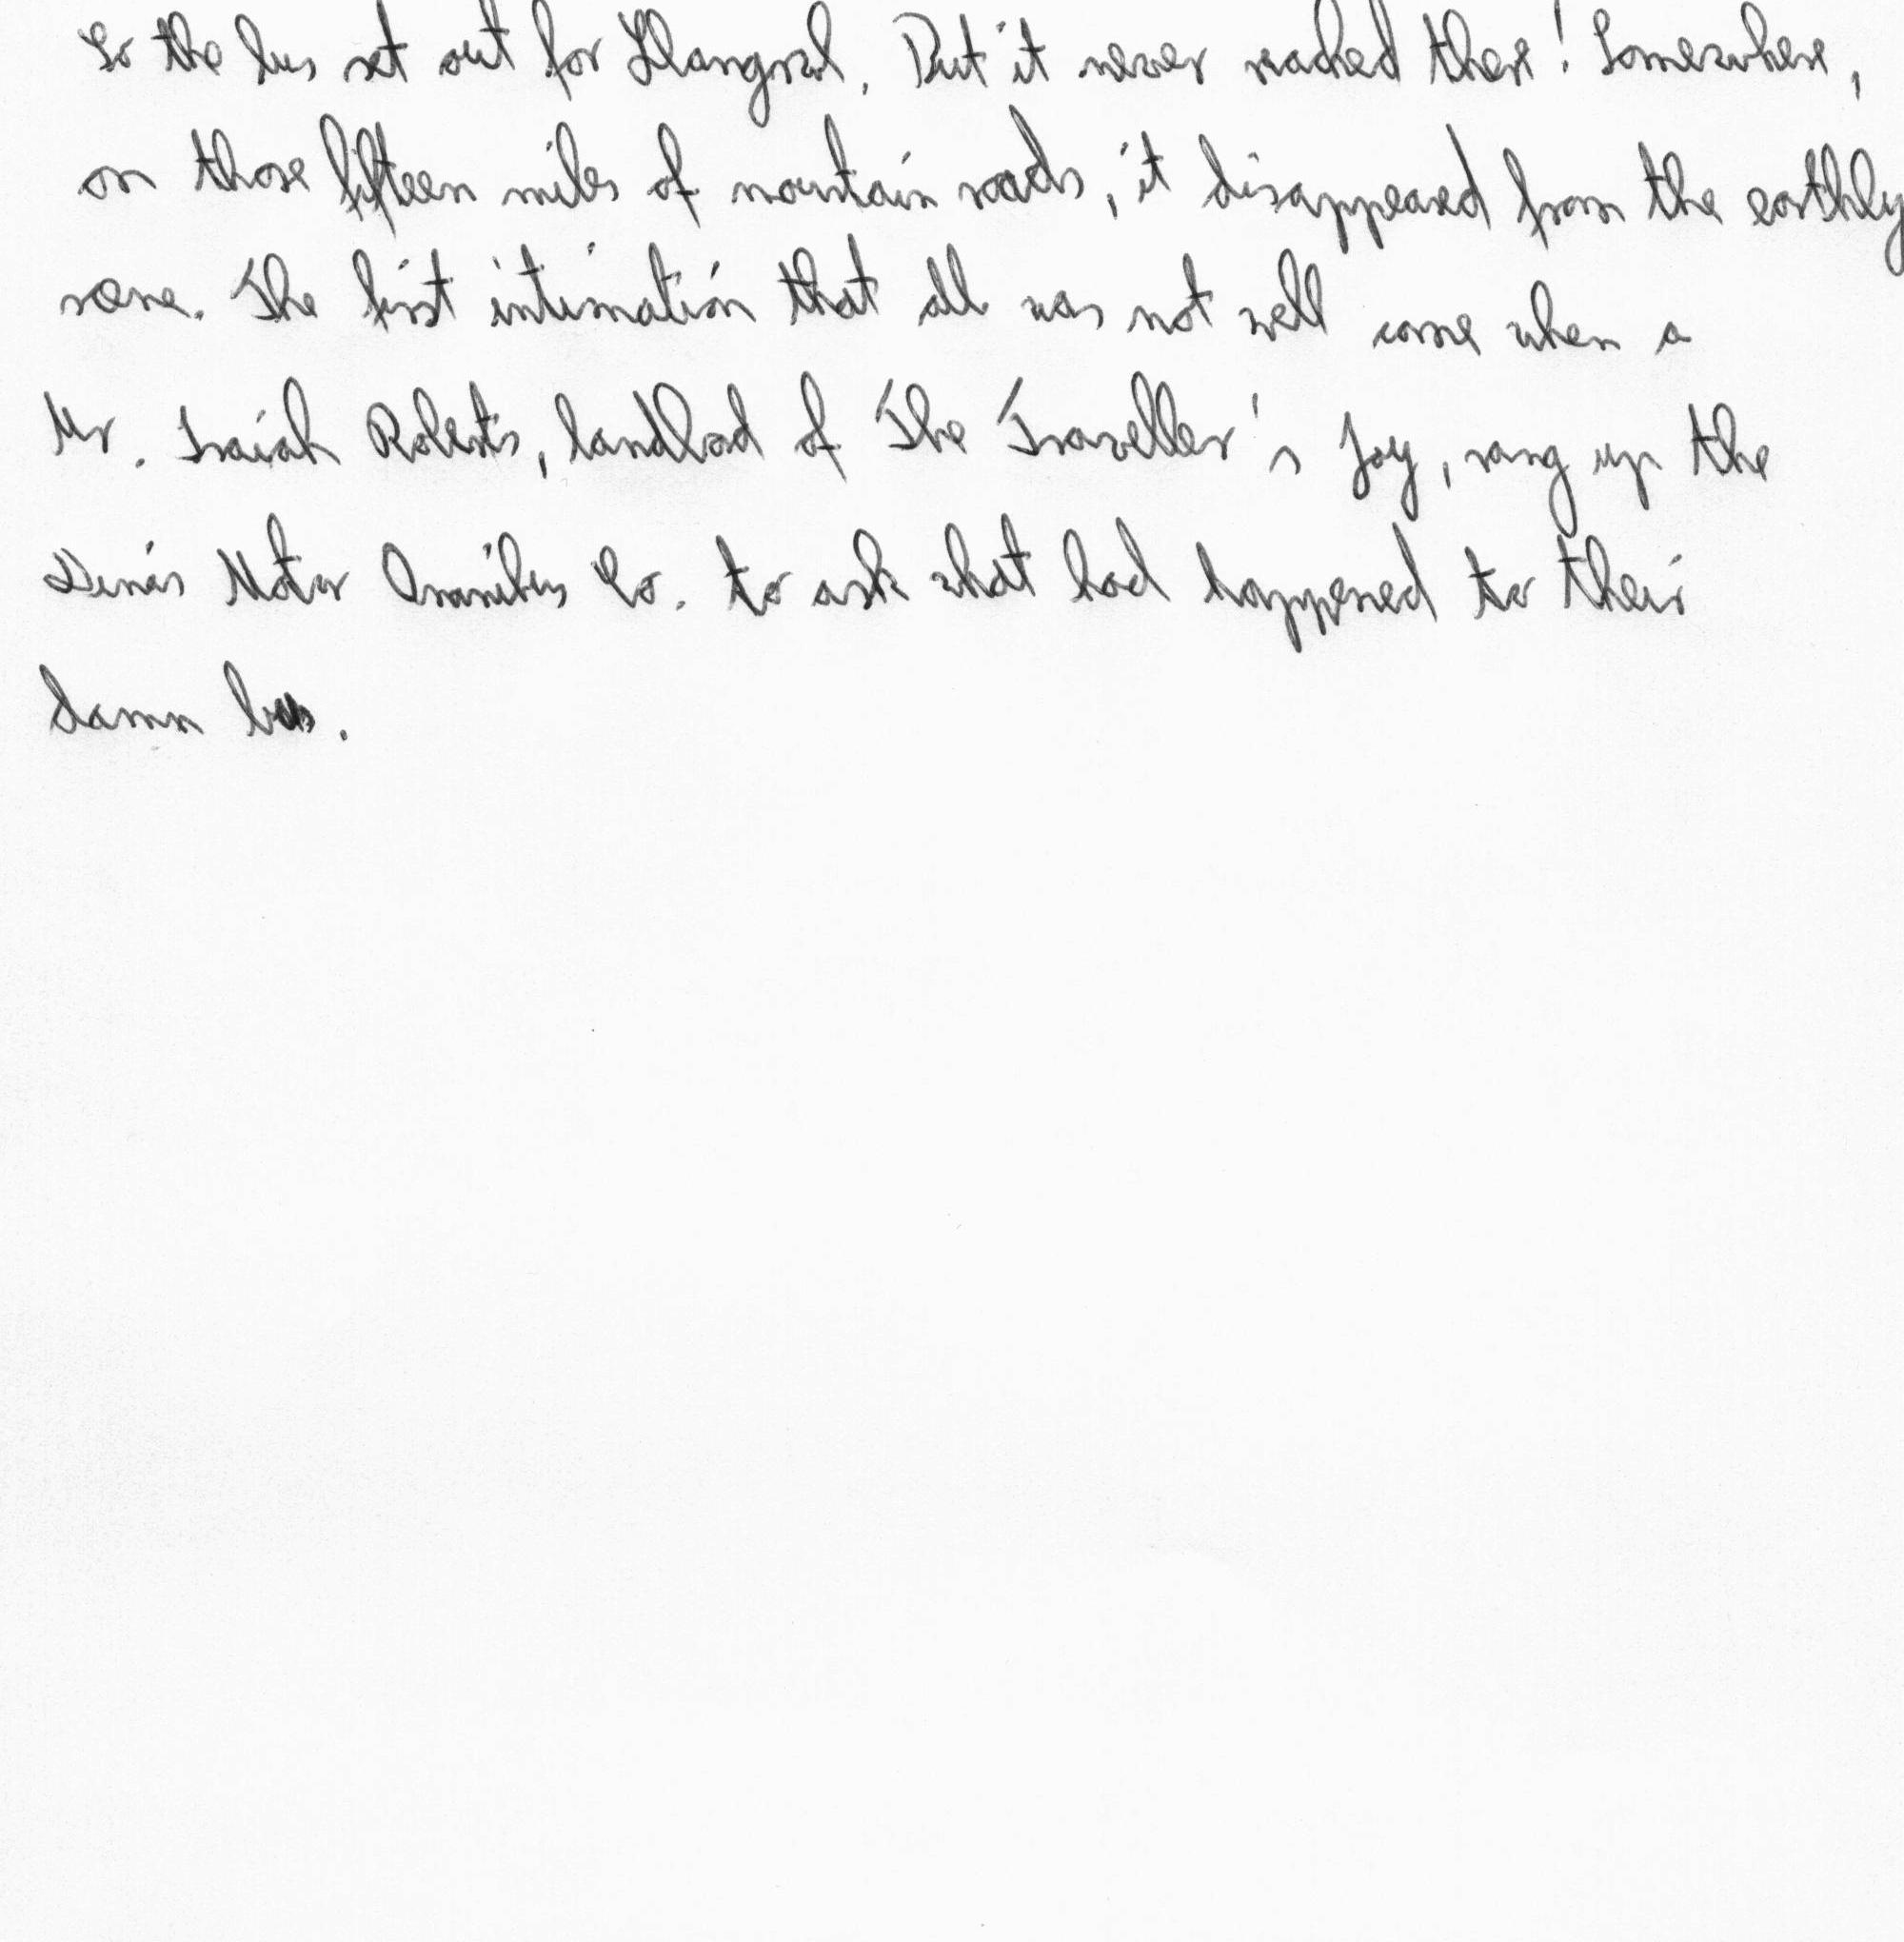 So the bus set out for Llangwul. But it never reached there! Somewhere,
on those fifteen miles of mountain roads, it disappeared from the earthly
scene. The first intimation that all was not well came when a
Mr. Isaiah Roberts, landlord of The Traveller's Joy, rang up the
Dinas Motor Omnibus Co. to ask what had happened to their
damn bus.